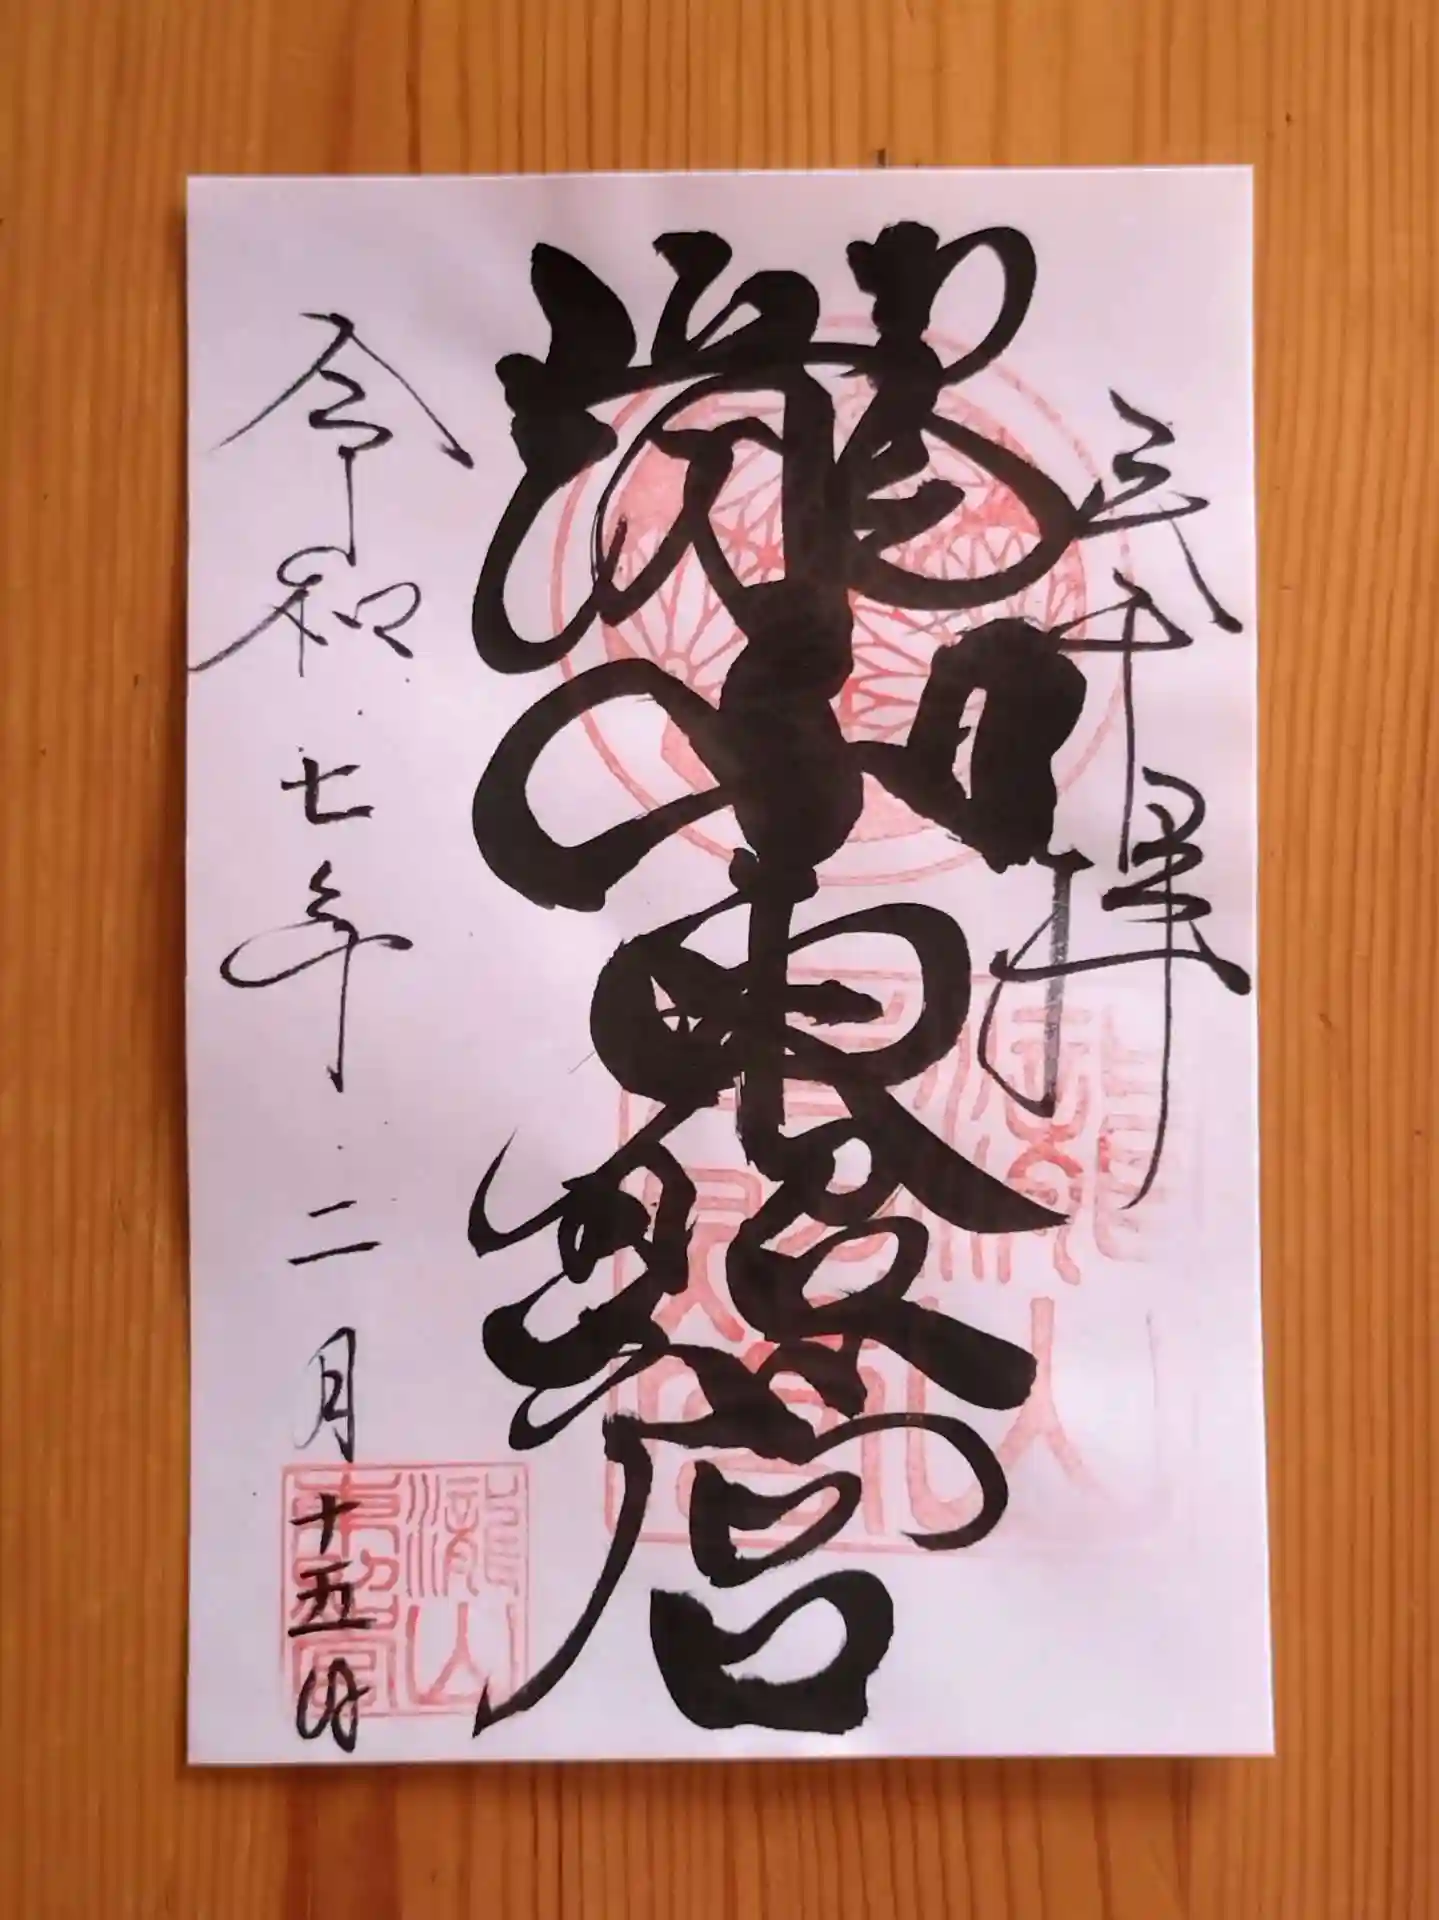 奉拝
瀧山東照宮
令和七年二月十五日
瀧山東照宮